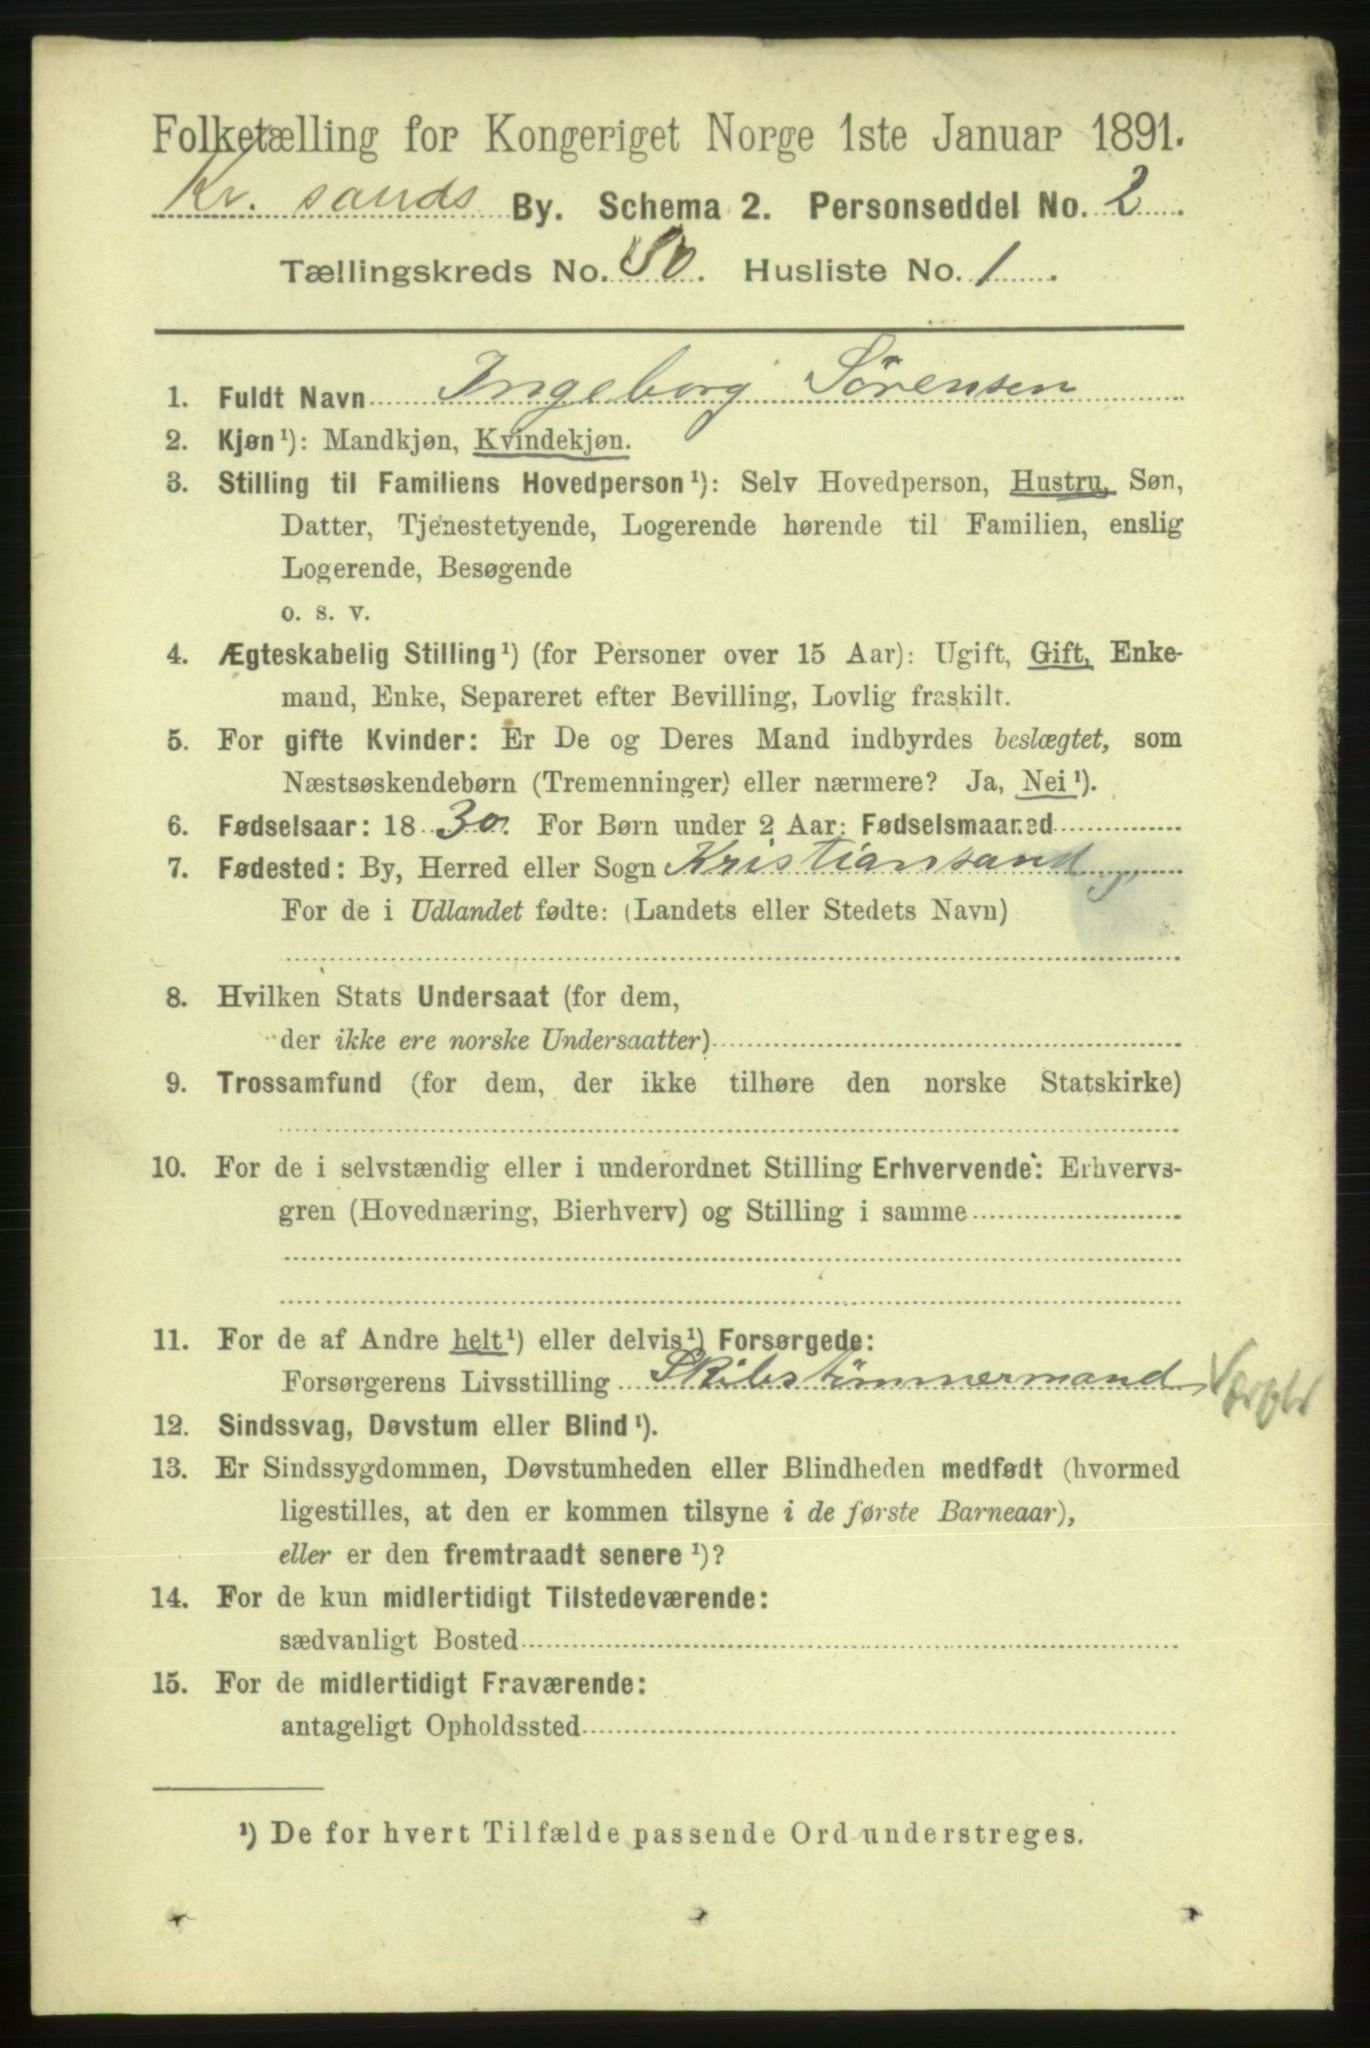 Folketælling for Kongeriget Norge 1ste Januar 1891.
Kr. sands By. Schema 2. Personseddel No. 2.
Tællingskreds No. 50. Husliste No. 1.
1. Fuldt Navn Ingeborg Sörensen
2. Kjøn¹): Mandkjøn, Kvindekjøn.
3. Stilling til Familiens Hovedperson¹): Selv Hovedperson, Hustru, Søn,
Datter, Tjenestetyende, Logerende hørende til Familien, enslig
Logerende, Besøgende
o. s. v.
4. Ægteskabelig Stilling¹) (for Personer over 15 Aar): Ugift, Gift, Enke-
mand, Enke, Separeret efter Bevilling, Lovlig fraskilt.
5. For gifte Kvinder: Er De og Deres Mand indbyrdes beslægtet, som
Næstsøskendebørn (Tremenninger) eller nærmere? Ja, Nei¹).
6. Fødselsaar: 1830. For Børn under 2 Aar: Fødselsmaaned
7. Fødested: By, Herred eller Sogn Kristiansand
For de i Udlandet fødte: (Landets eller Stedets Navn)
8. Hvilken Stats Undersaat (for dem,
der ikke ere norske Undersaatter)
9. Trossamfund (for dem, der ikke tilhøre den norske Statskirke)
10. For de i selvstændig eller i underordnet Stilling Erhvervende: Erhvervs-
gren (Hovednæring, Bierhverv) og Stilling i samme
11. For de af Andre helt¹) eller delvis¹) Forsørgede:
Forsørgerens Livsstilling Skibstömmermand
12. Sindssvag, Døvstum eller Blind¹).
13. Er Sindssygdommen, Døvstumheden eller Blindheden medfødt (hvormed
ligestilles, at den er kommen tilsyne i de første Barneaar),
eller er den fremtraadt senere¹)?
14. For de kun midlertidigt Tilstedeværende:
sædvanligt Bosted
15. For de midlertidigt Fraværende:
antageligt Opholdssted
¹) De for hvert Tilfælde passende Ord understreges.